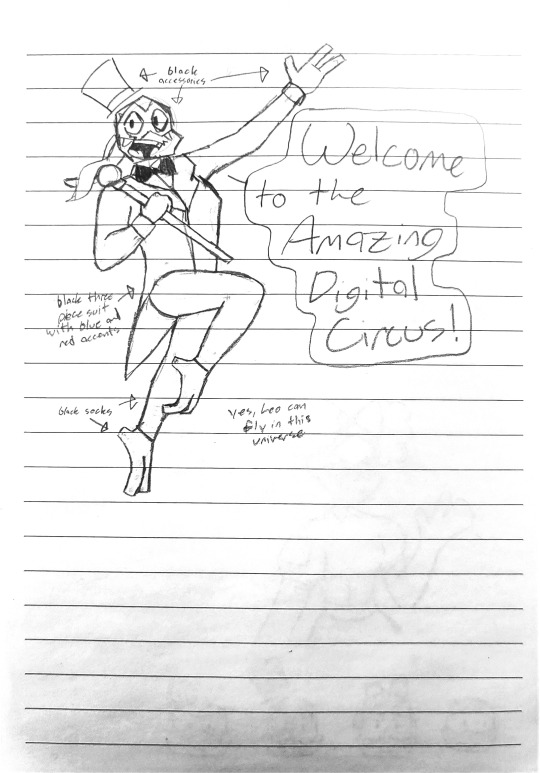 black
accessories
Welcome
to the
Amazing
Digital
Circus!
black three
piece suit
with blue and
red accents
black socks
yes, Leo can
fly in this
universe